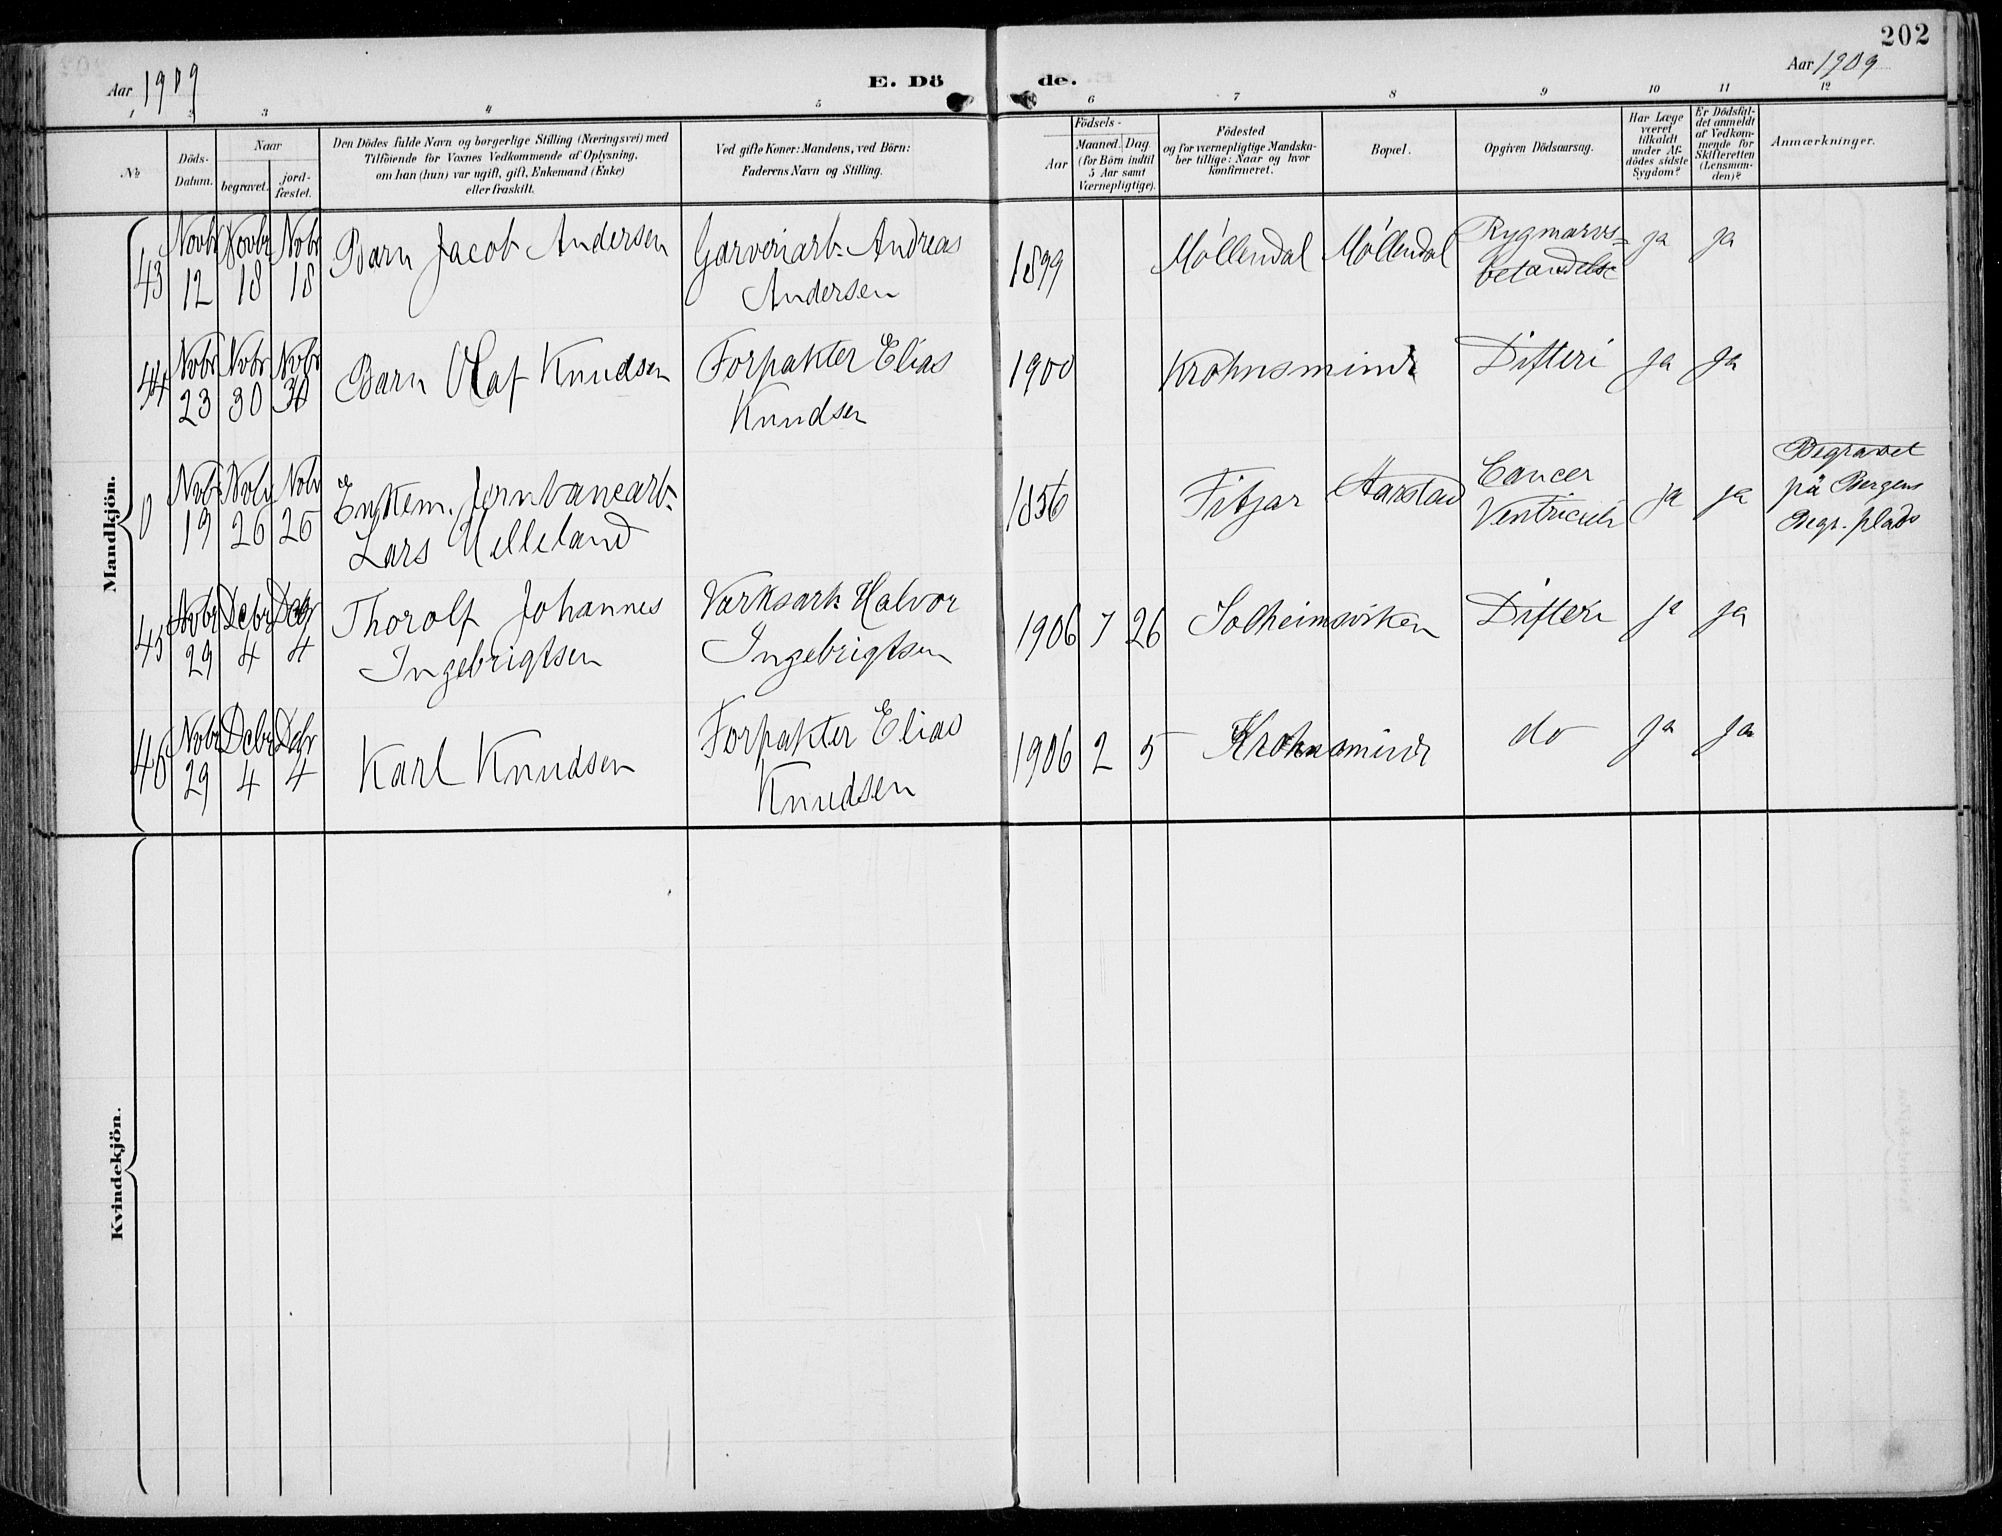 202
Aar 1909
E. Dö de.
Aar 1909
1 2 3 4 5 6 7 8 9 10 11 12
№
Döds-
Datum.
Naar
begravet.
jord-
fæstet.
Den Dödes fulde Navn og borgerlige Stilling (Næringsvei) med
Tilföiende for Voxnes Vedkommende af Oplysning,
om han (hun) var ugift, gift, Enkemand (Enke)
eller fraskilt.
Ved gifte Koner: Mandens, ved Börn:
Faderens Navn og Stilling.
Födsels-
Aar
Maaned. Dag.
(for Börn indtil
5 Aar samt
Værnepligtige).
Födested
og for værnepligtige Mandska-
ber tillige: Naar og hvor
konfirmeret.
Bopæl.
Opgiven Dödsaarsag.
Har Læge
været
tilkaldt
under Af-
dödes sidste
Sygdom?
Er Dödsfal-
det anmeldt
af Vedkom-
mende for
Skifteretten
(Lensman-
den)?
Anmærkninger.
Mandkjön.
43 Novbr 12 Novbr 18 Nobr 18 Barn Jacob Andersen Garveriarb. Andreas
Andersen 1899 Møllendal Møllendal Rygmarvs=
betændelse ja ja
44 Nvbr 23 Nvbr 30 Nvbr 30 Barn Olaf Knudsen Forpakter Elias
Knudsen 1900 Krohnsminde Difteri ja ja
0 Nvbr 19 Nvbr 26 Nvbr 26 Enkem. Jernbanearb.
Lars Helleland 1856 Fitjar Aarstad Cancer
Ventriculi ja ja Begravet
på Bergens
Begr. plads
45 Nvbr 29 Debr 4 Debr 4 Thorolf Johannes
Ingebrigtsen Værksarb. Halvor
Ingebrigtsen 1906 7 26 Solheimsviken Difteri ja ja
46 Nobr 29 Debr 4 Debr 4 Karl Knudsen Forpakter Elias
Knudsen 1906 2 5 Krohnsminde do ja ja
Kvindekjön.